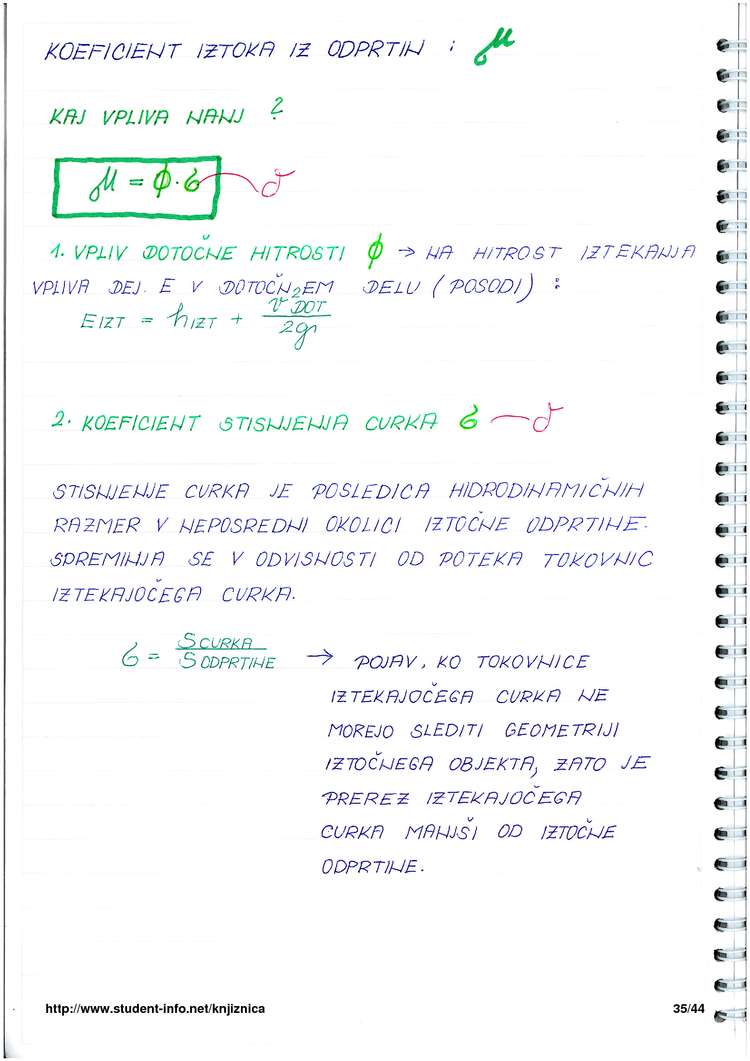 KOEFICIENT IZTOKA IZ ODPRTIN : μ
KAJ VPLIVA NANJ ?
μ = ϕ·σ δ
1. VPLIV DOTOČNE HITROSTI ϕ → NA HITROST IZTEKANJA
VPLIVA DEJ. E V DOTOČNEM DELU (POSODI) :
E IZT = h IZT + v² DOT / 2g
2. KOEFICIENT STISNJENJA CURKA σ δ
STISNJENJE CURKA JE POSLEDICA HIDRODINAMIČNIH
RAZMER V NEPOSREDNI OKOLICI IZTOČNE ODPRTINE.
SPREMINJA SE V ODVISNOSTI OD POTEKA TOKOVNIC
IZTEKAJOČEGA CURKA.
σ = S CURKA / S ODPRTINE → POJAV, KO TOKOVNICE
IZTEKAJOČEGA CURKA NE
MOREJO SLEDITI GEOMETRIJI
IZTOČNEGA OBJEKTA, ZATO JE
PREREZ IZTEKAJOČEGA
CURKA MANJŠI OD IZTOČNE
ODPRTINE.
http://www.student-info.net/knjiznica 35/44